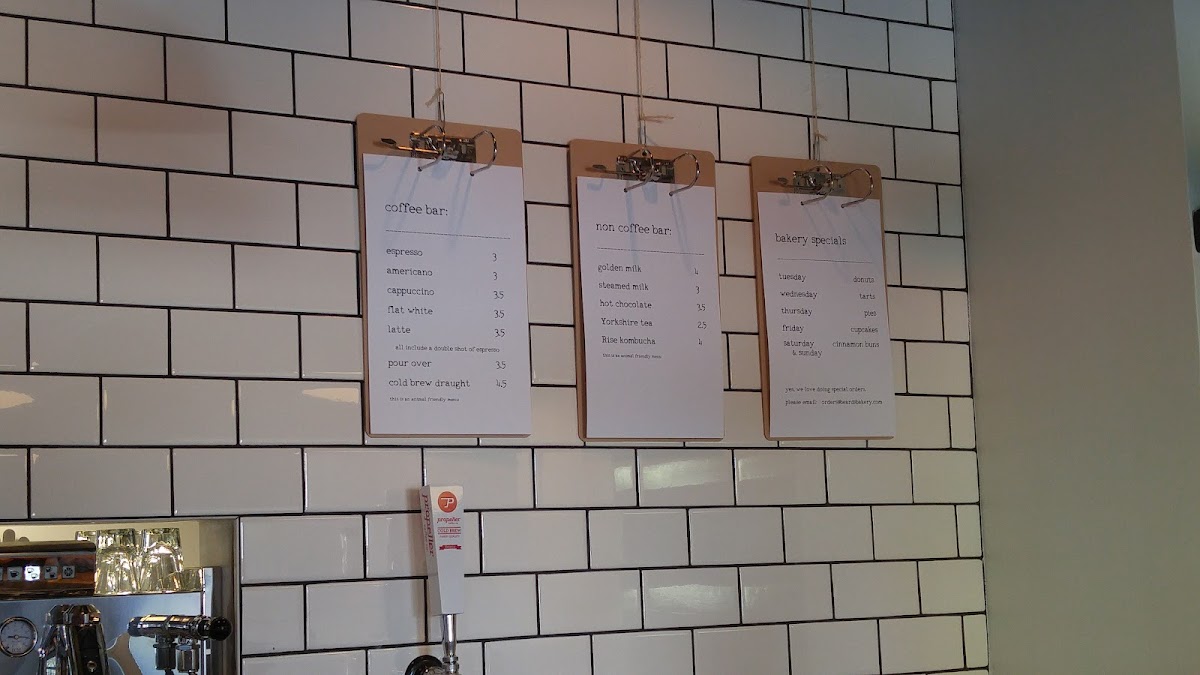 coffee bar:
espresso 3
americano 3
cappuccino 3.5
flat white 3.5
latte 3.5
all include a double shot of espresso
pour over 3.5
cold brew draught 4.5
this is an animal friendly menu
non coffee bar:
golden milk 4
steamed milk 3
hot chocolate 3.5
Yorkshire tea 2.5
Rise kombucha 4
this is an animal friendly menu
bakery specials
tuesday donuts
wednesday tarts
thursday pies
friday cupcakes
saturday cinnamon buns
& sunday
yes, we love doing special orders
please email:
propeller
propeller
COLD BREW